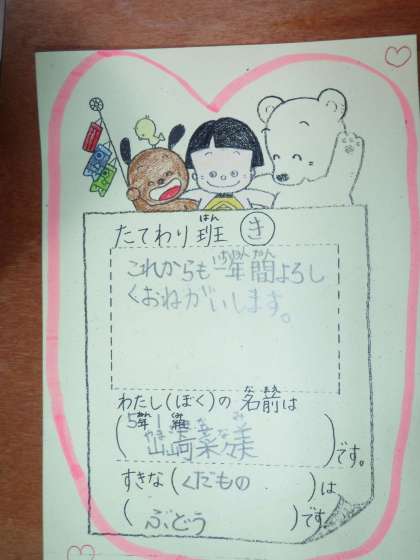 はん
たてわり班 き
いちねんかん
これからも一年間よろし
くおねがいします。
なまえ
わたし(ぼく)の名前は
5年1組
(山崎菜々美)です。
すきな(くだもの)は
(ぶどう)です